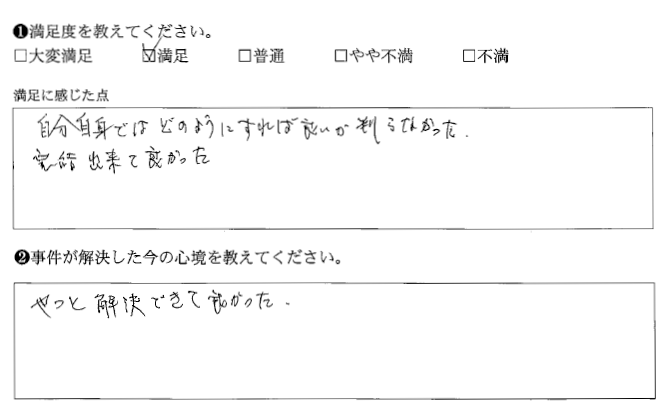 ❶満足度を教えてください。
□大変満足 ☑満足 □普通 □やや不満 □不満
満足に感じた点
自分自身ではどのようにすれば良いか判らなかった.
完結出来て良かった
❷事件が解決した今の心境を教えてください。
やっと解決できて良かった.